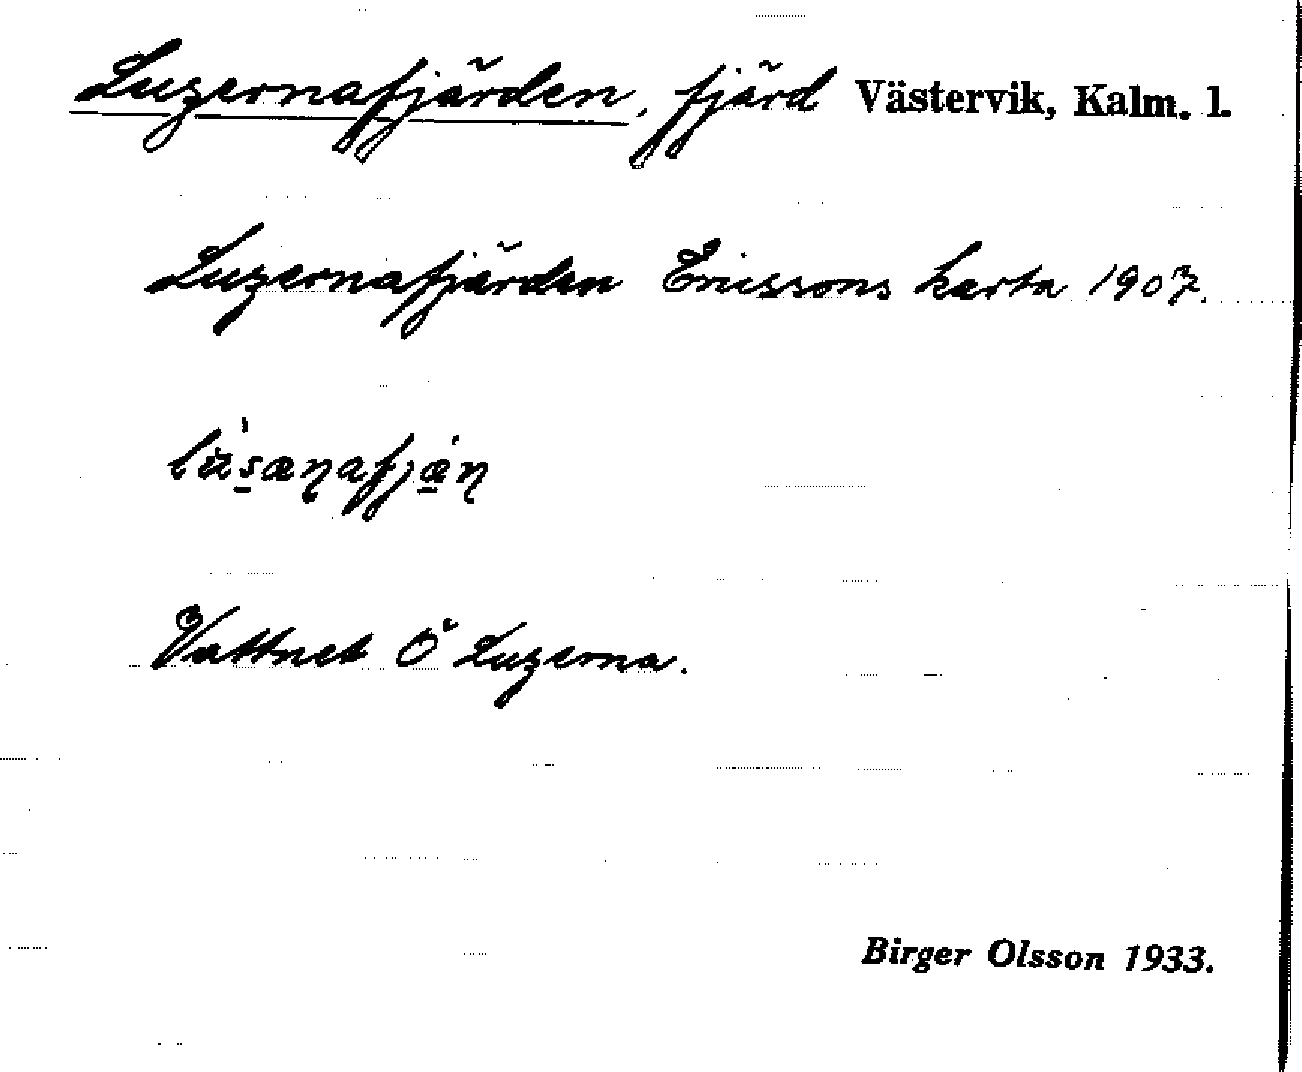 Luzernafjärden, fjärd Västervik, Kalm. l.
Luzernafjärden Ericssons karta 1907.
Vattnet Ö Luzerna.
Birger Olsson 1933.